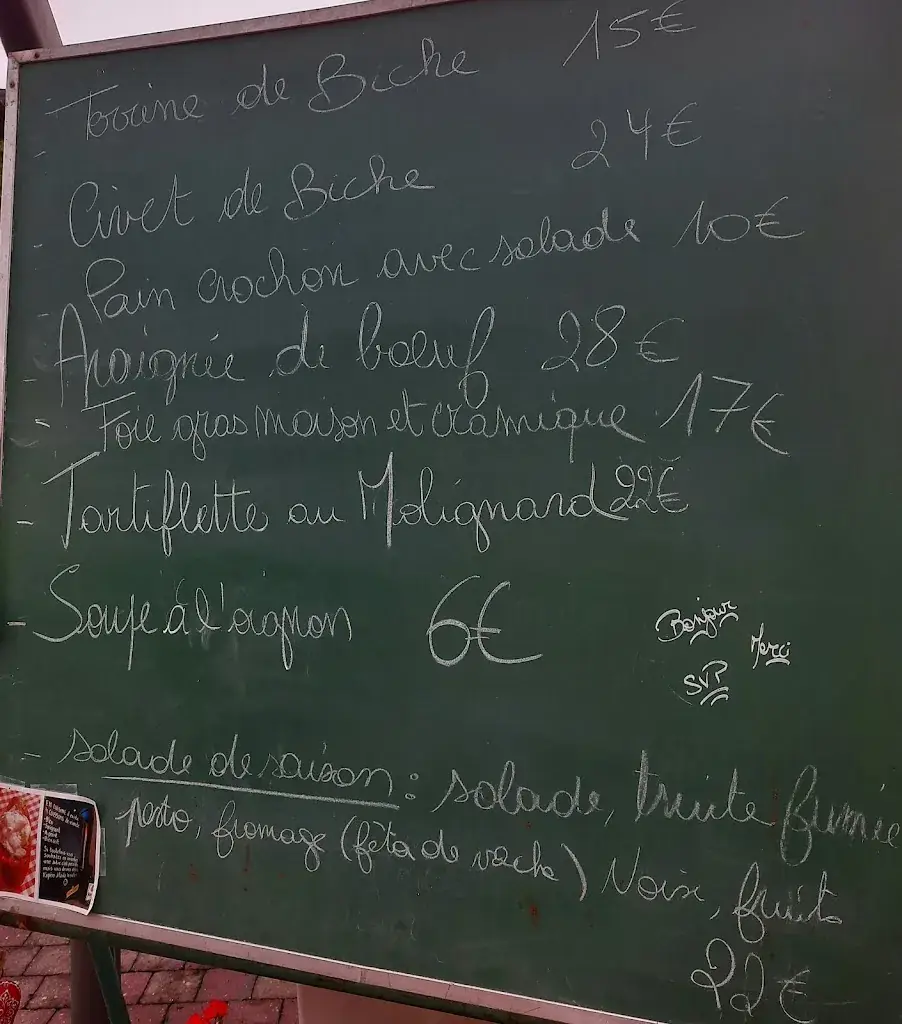 - Terrine de Biche 15€
- Civet de Biche 24€
- Pain crochon avec salade 10€
- Araignée de bœuf 28€
- Foie gras maison et cramique 17€
- Tartiflette au Molignard 22€
- Soupe à l'oignon 6€
Bonjour
Merci
SVP
- salade de saison : salade, truite fumée
pesto, fromage (fêta de vache) Noix, fruits
22€